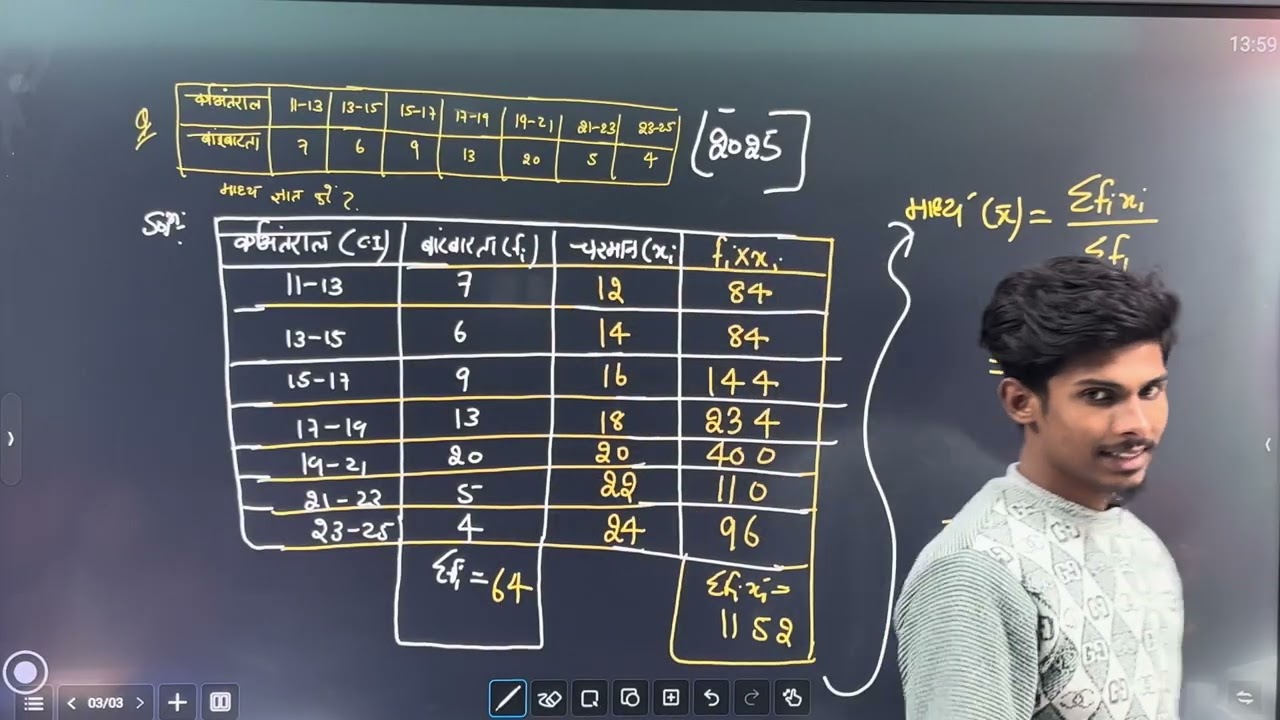 13:59
Q वर्गअंतराल 11-13 13-15 15-17 17-19 19-21 21-23 23-25
बारंबारता 7 6 9 13 20 5 4
[2025]
माध्य ज्ञात करें ?
Solⁿ:
वर्गअंतराल (CI) बारंबारता (fᵢ) चरमान (xᵢ fᵢ×xᵢ
11-13 7 12 84
13-15 6 14 84
15-17 9 16 144
17-19 13 18 234
19-21 20 20 400
21-23 5 22 110
23-25 4 24 96
Σfᵢ = 64 Σfᵢxᵢ = 1152
माध्य (x̄) = Σfᵢxᵢ / Σfᵢ
=
03/03